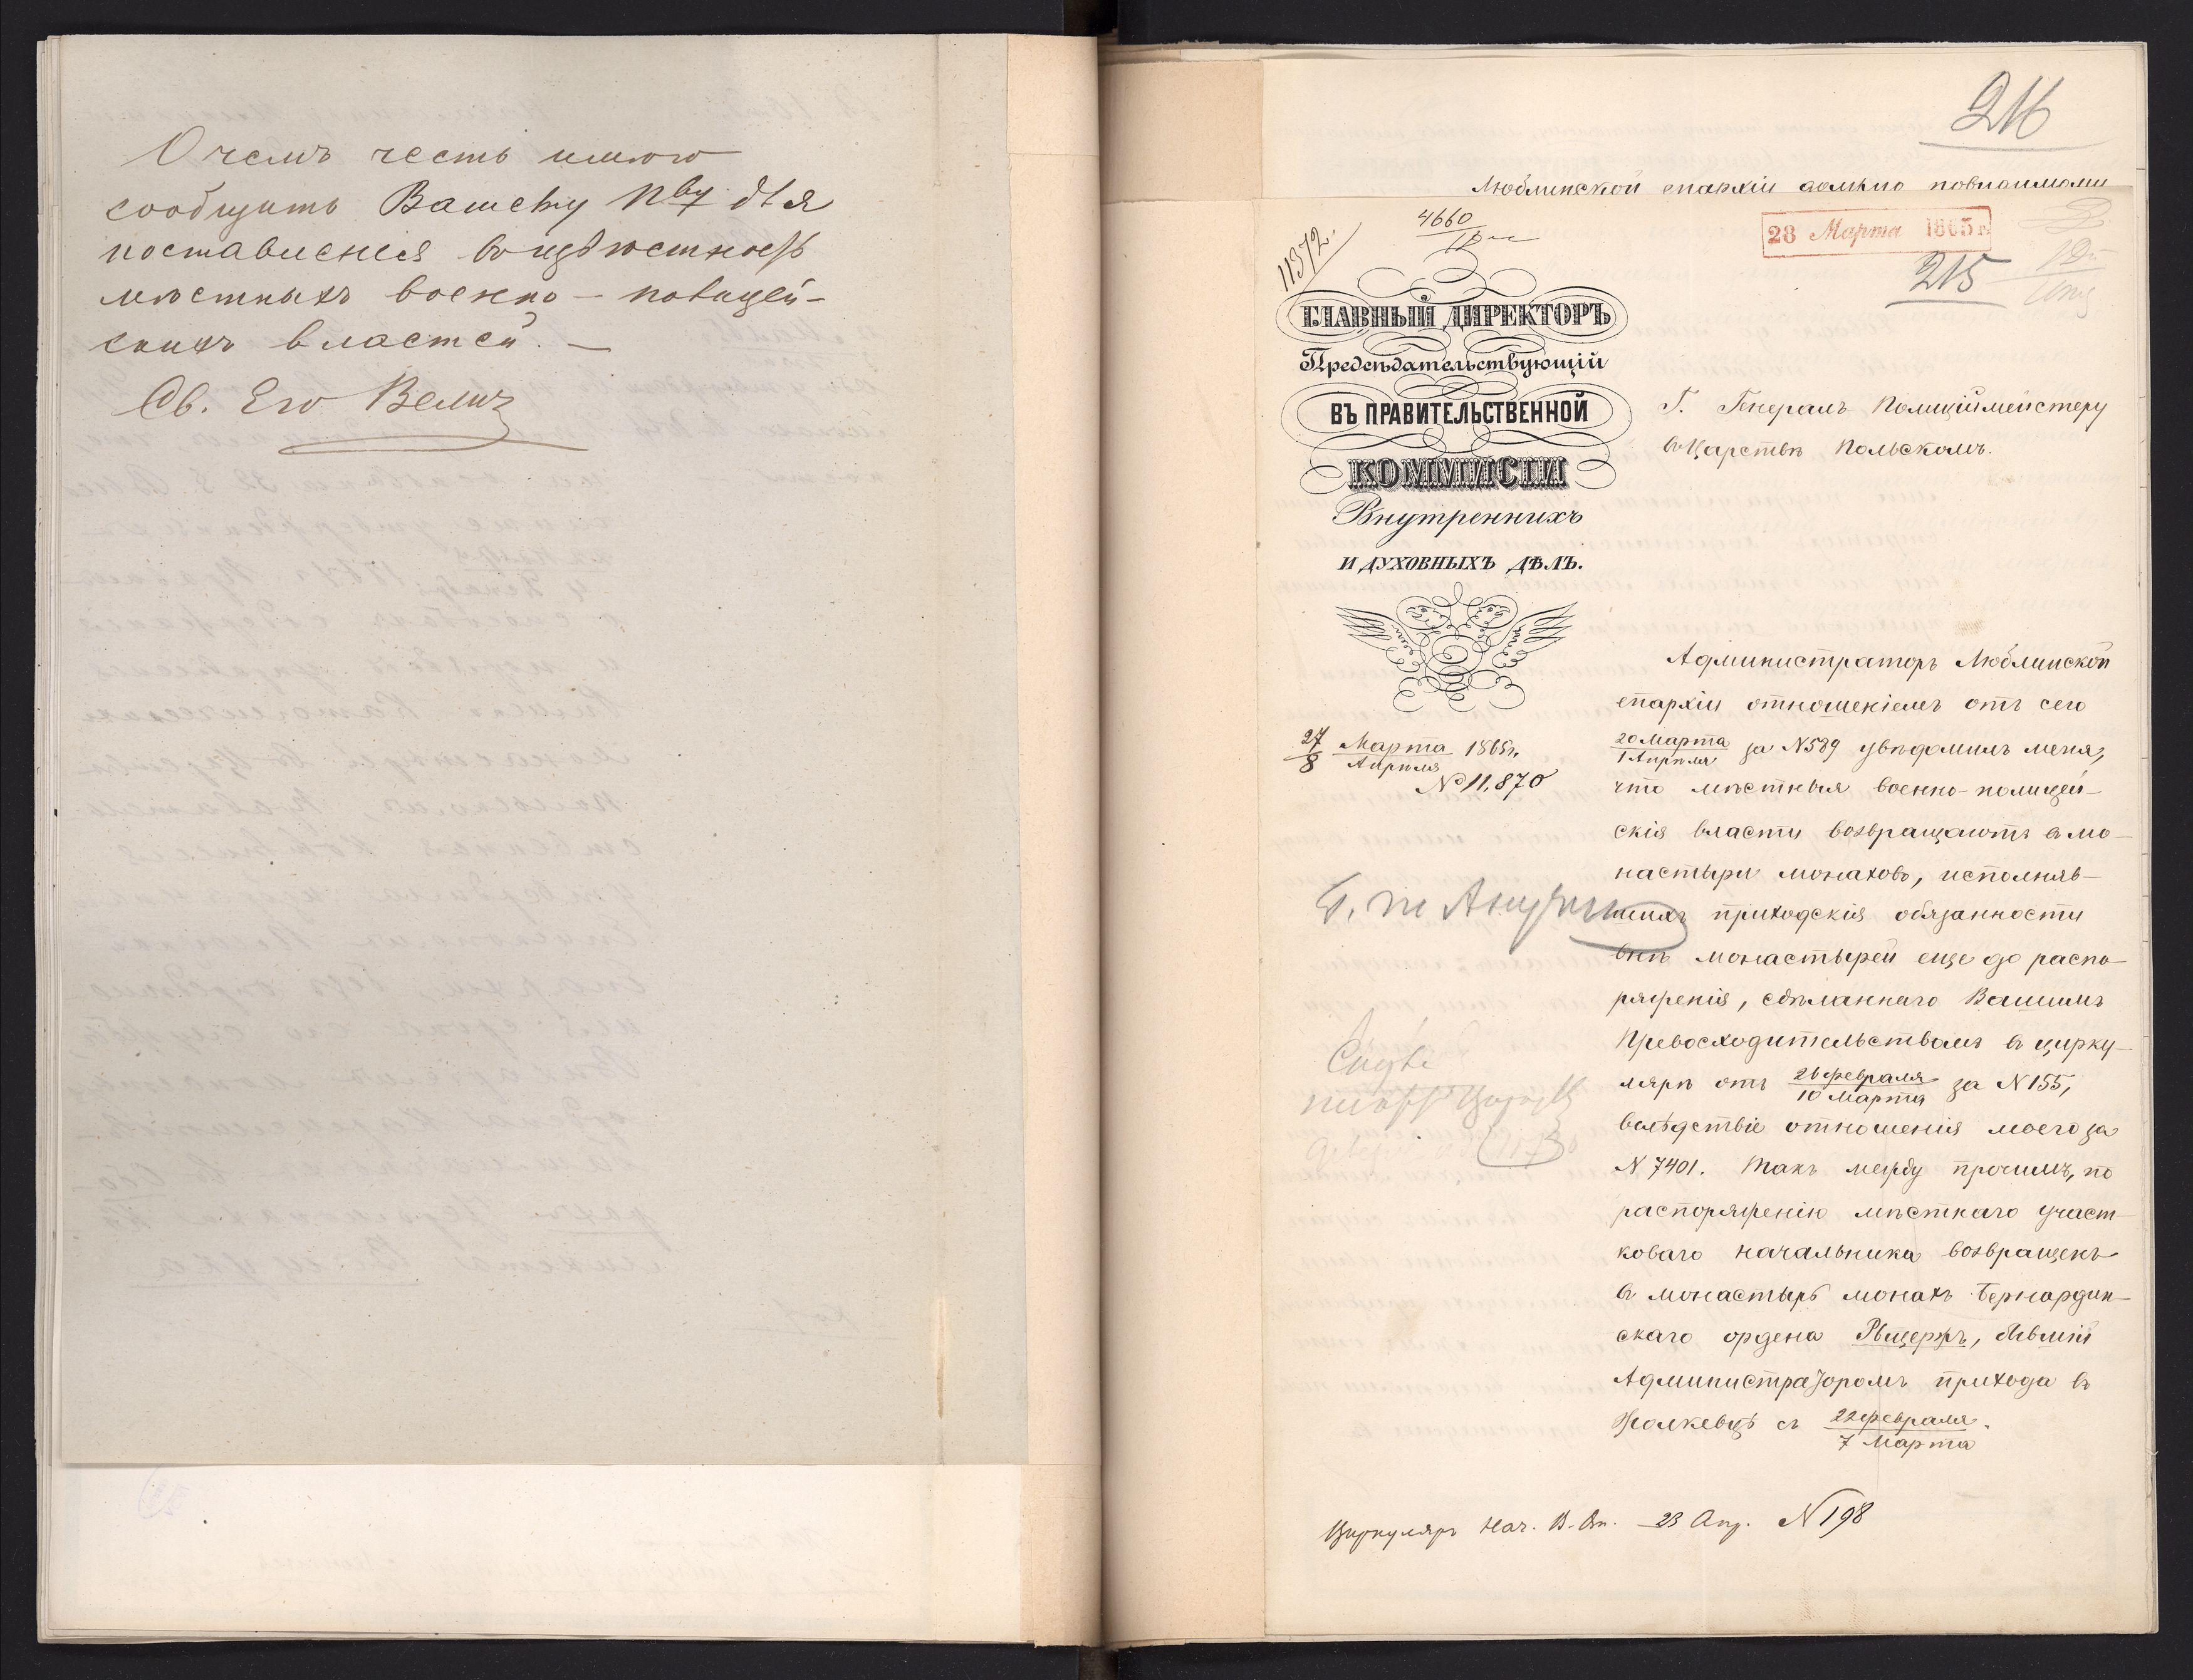 О чемъ честь имѣю
сообщить Вашему Пву для
поставленія въ извѣстность
мѣстныхъ военно-полицей-
скихъ властей. —
Св. Его Велич
216
Люблинской епархіи
4660
11372.
28 Марта 1865 г.
215
ГЛАВНЫЙ ДИРЕКТОРЪ
Предсѣдательствующій
ВЪ ПРАВИТЕЛЬСТВЕННОЙ
КОММИСІИ
Внутреннихъ
И ДУХОВНЫХЪ ДѢЛЪ.
27 Марта / 8 Апрѣля 1865 г.
№ 11,870
Г. Генералъ-Полиціймейстеру
въ Царствѣ Польскомъ.
Администраторъ Люблинской
епархіи отношеніемъ отъ сего
20 Марта / 1 Апрѣля за № 589 увѣдомилъ меня,
что мѣстныя военно-полицей-
скія власти возвращаютъ въ мо-
настыри монаховъ, исполняв-
шихъ приходскія обязанности
внѣ монастырей еще до распо-
ряженія, сдѣланнаго Вашимъ
Превосходительствомъ въ цирку-
лярѣ отъ 26 Февраля / 10 Марта за № 155,
вслѣдствіе отношенія моего за
№ 7401. Такъ между прочимъ, по
распоряженію мѣстнаго участ-
коваго начальника возвращенъ
въ монастырь монахъ Бернардин-
скаго ордена Рыщержъ, бывшій
Администраторомъ прихода въ
Жолкевцѣ съ 22 Февраля / 7 Марта.
Циркуляръ Нач. В. От. 23 Апр. № 198